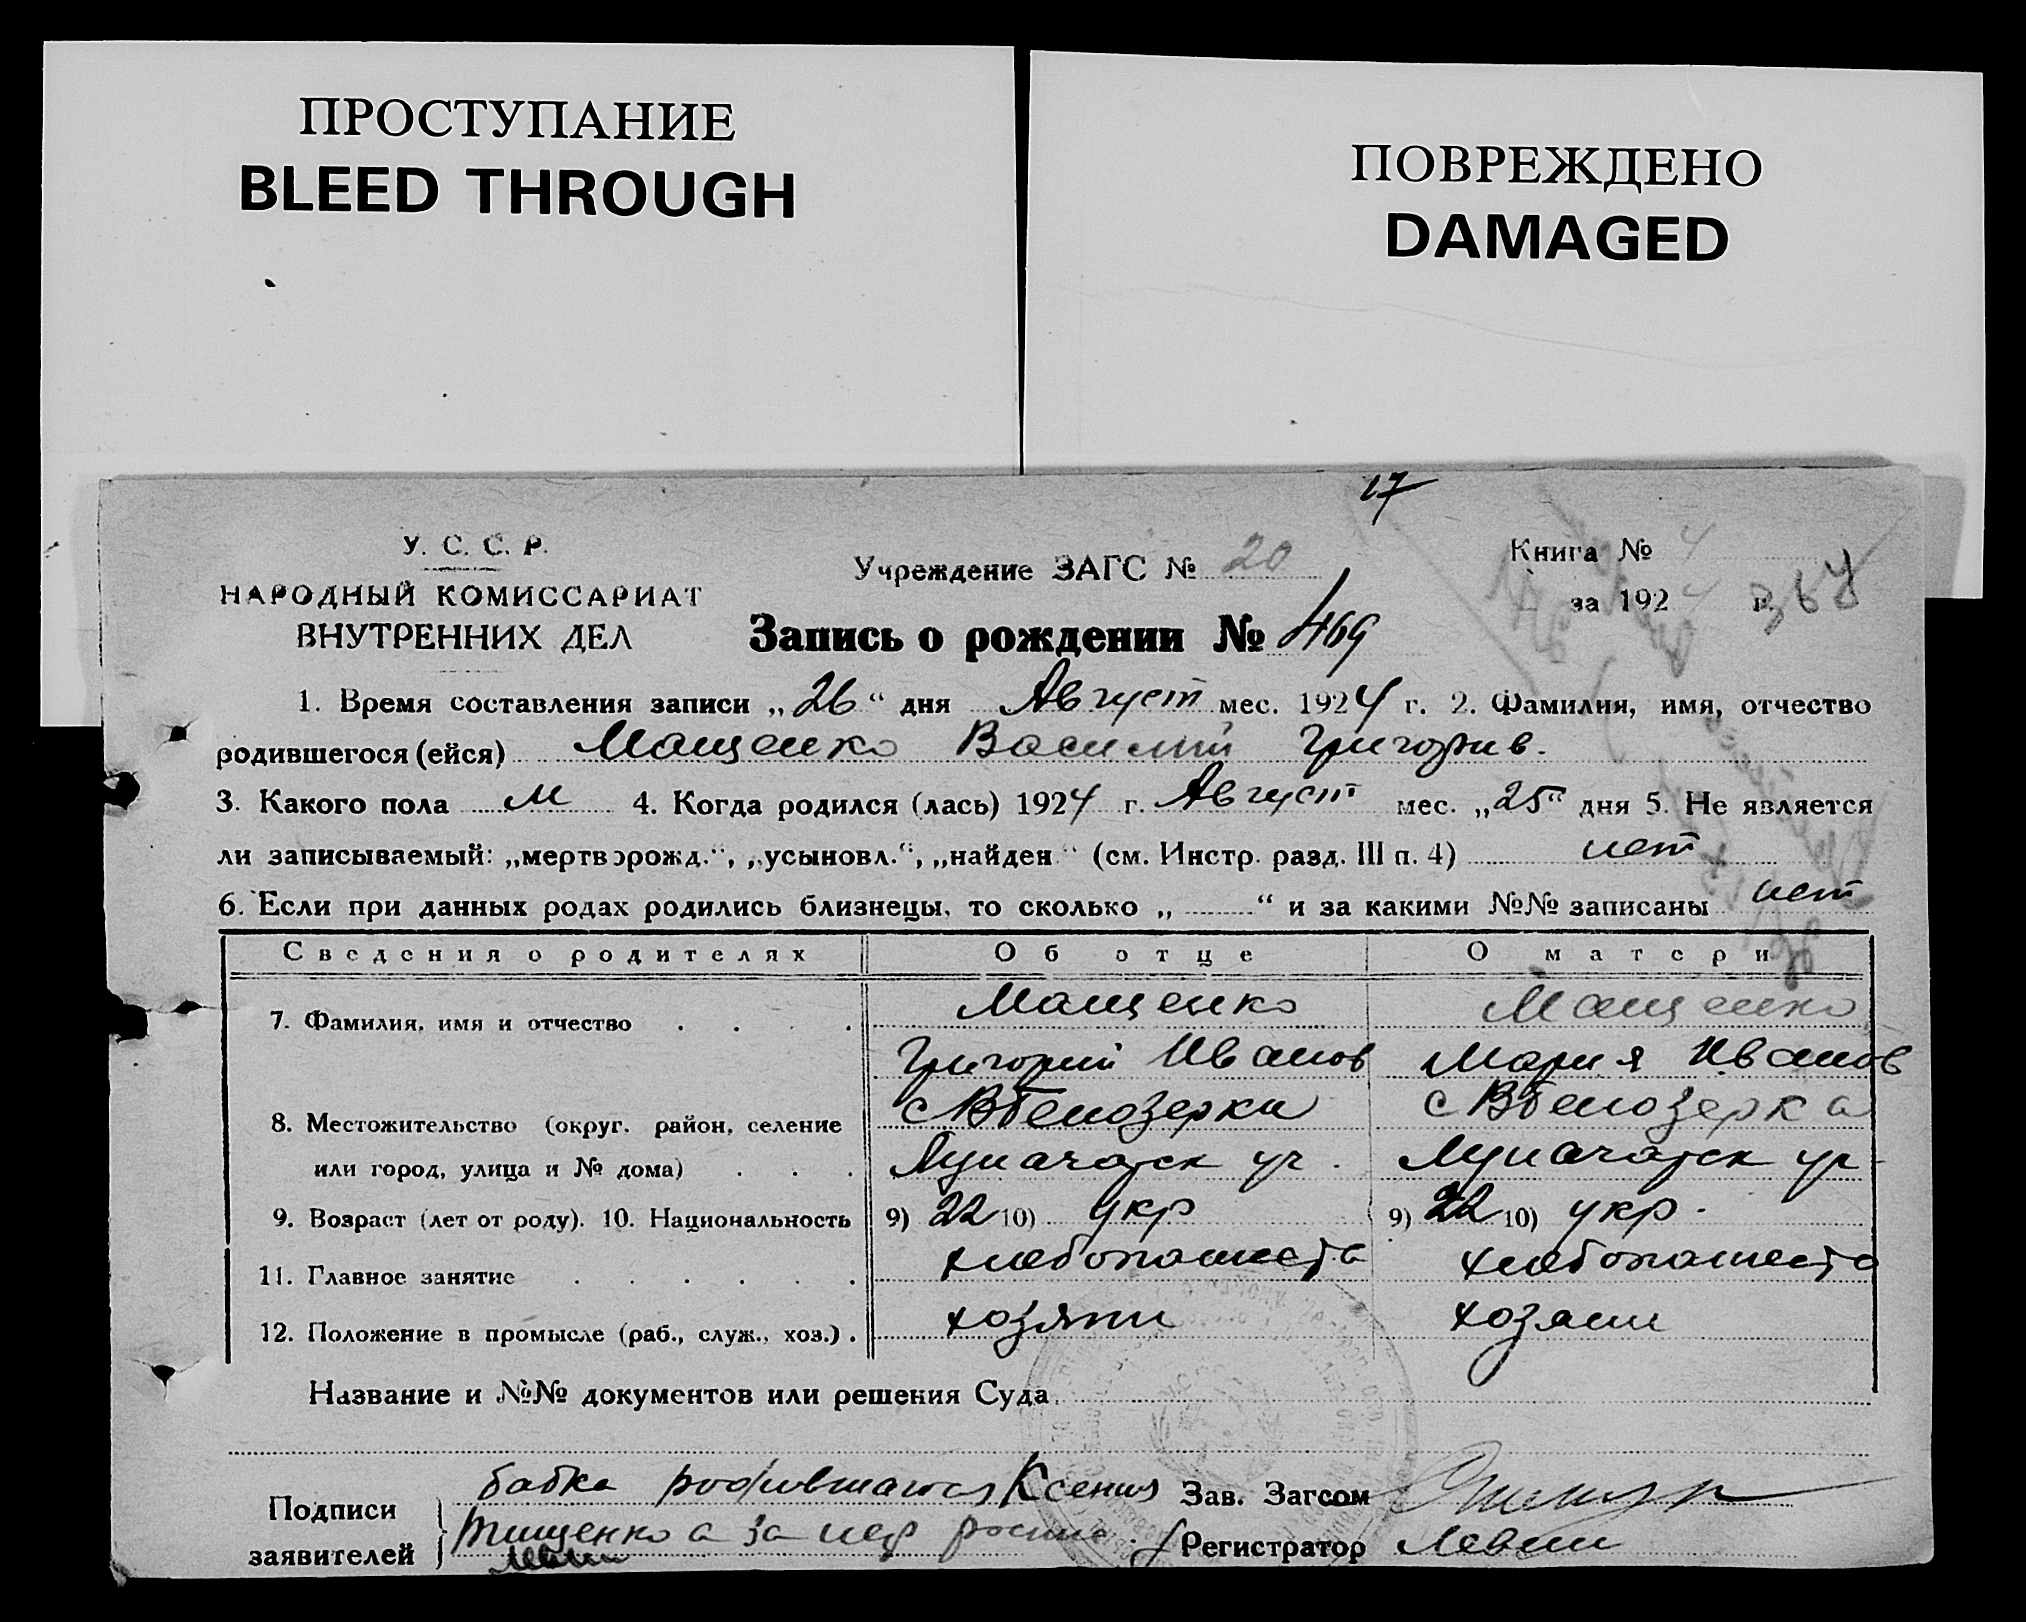 ПРОСТУПАНИЕ
BLEED THROUGH
ПОВРЕЖДЕНО
DAMAGED
17
У. С. С. Р.
НАРОДНЫЙ КОМИССАРИАТ
ВНУТРЕННИХ ДЕЛ
Учреждение ЗАГС № 20
Книга № 4
за 1924 г.
Запись о рождении № 469
1. Время составления записи „26“ дня Август мес. 1924 г. 2. Фамилия, имя, отчество
родившегося (ейся) Мащенко Василий Григорив.
3. Какого пола м 4. Когда родился (лась) 1924 г. Август мес. „25“ дня 5. Не является
ли записываемый: „мертворожд.“, „усыновл.“, „найден“ (см. Инстр. разд. III п. 4) нет
6. Если при данных родах родились близнецы, то сколько „ “ и за какими №№ записаны нет
Сведения о родителях Об отце О матери
7. Фамилия, имя и отчество Мащенко Мащенко
Григорий Иванов Мария Иванов
8. Местожительство (округ, район, селение с ВБелозерки с ВБелозерка
или город, улица и № дома)
9. Возраст (лет от роду). 10. Национальность 9) 22 10) укр 9) 22 10) укр.
11. Главное занятие хлебопашеств хлебопашеств
12. Положение в промысле (раб., служ., хоз.) хозяин хозяин
Название и №№ документов или решения Суда
Подписи заявителей
бабка родившагося Ксения
Тищенко а за неф росписа
Левин
Зав. Загсом
Регистратор Левин